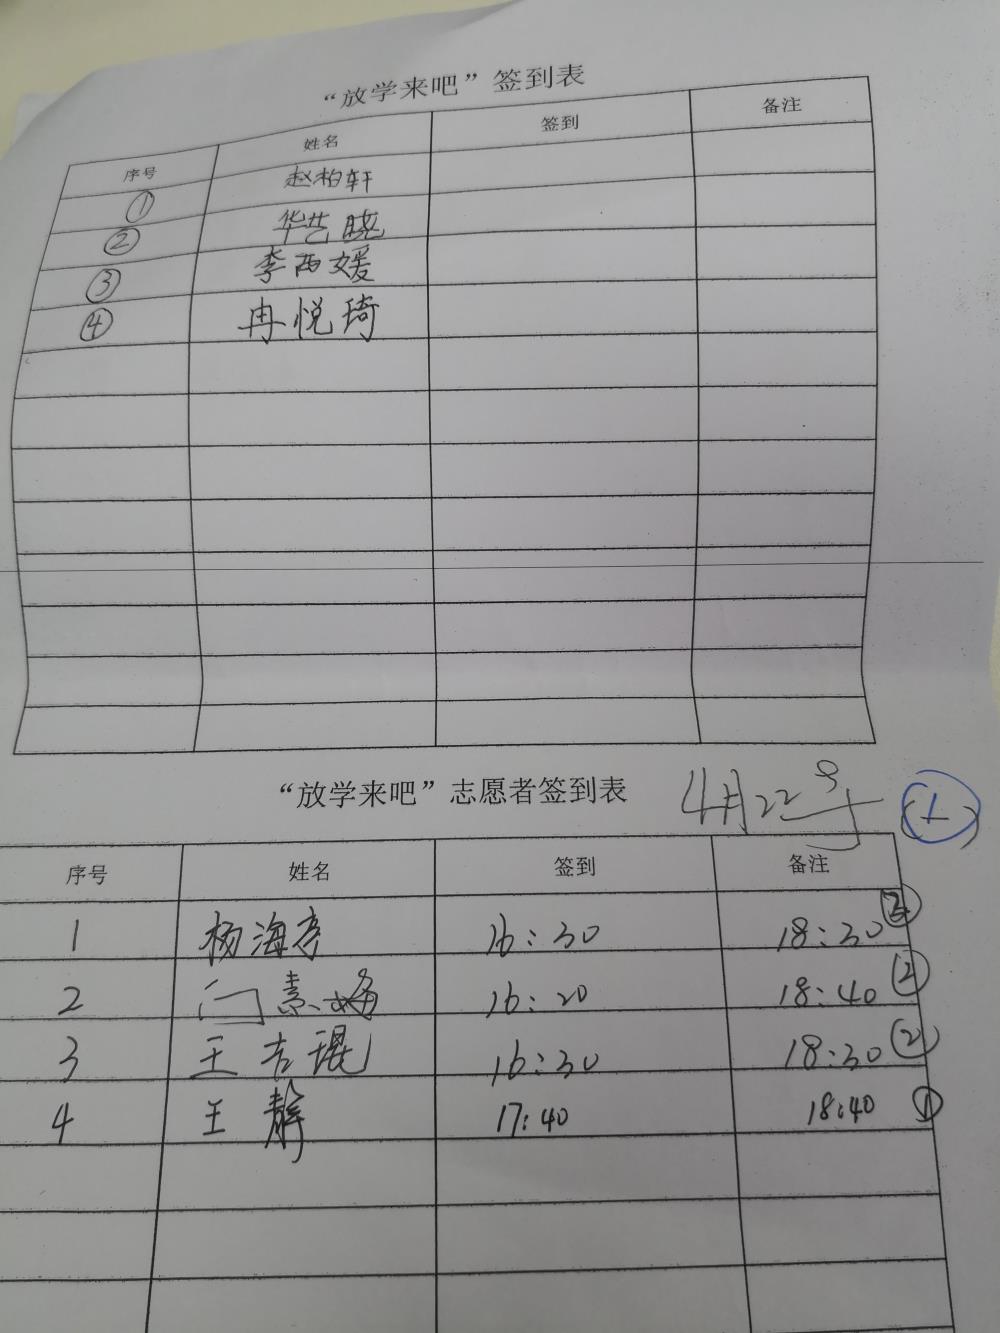 “放学来吧”签到表
序号 姓名 签到 备注
① 赵柏轩
② 华艺晓
③ 李西媛
④ 冉悦琦
“放学来吧”志愿者签到表 4月22号
序号 姓名 签到 备注
1 杨海亭 16:30 18:30
2 门素 16:20 18:40 ②
3 王吉琨 16:30 18:30 ②
4 王静 17:40 18:40 ①